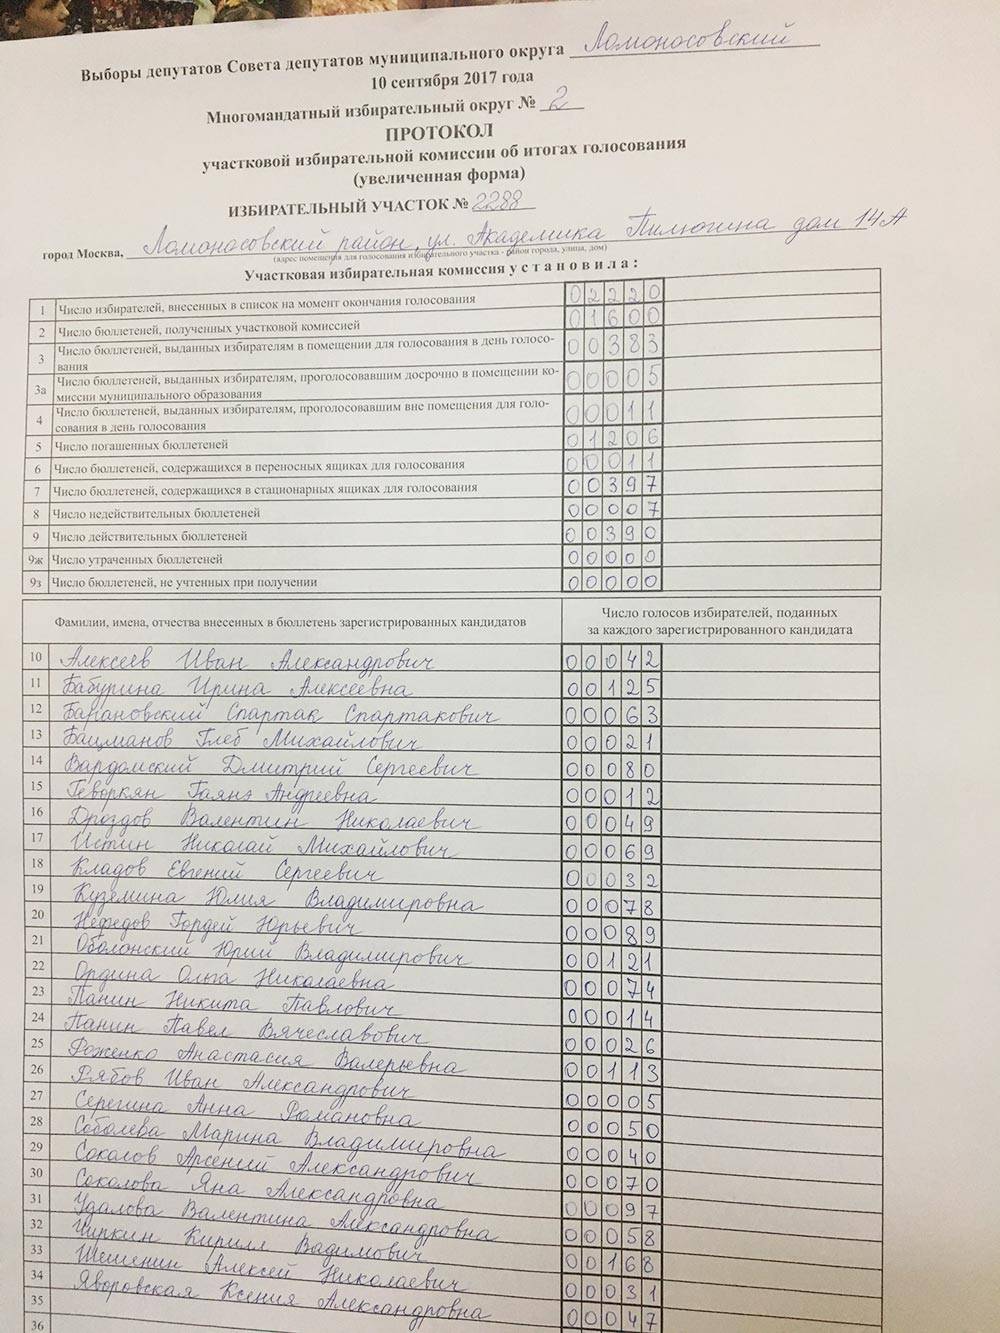 Выборы депутатов Совета депутатов муниципального округа Ломоносовский
10 сентября 2017 года
Многомандатный избирательный округ № 2
ПРОТОКОЛ
участковой избирательной комиссии об итогах голосования
(увеличенная форма)
ИЗБИРАТЕЛЬНЫЙ УЧАСТОК № 2288
город Москва, Ломоносовский район, ул. Академика Пилюгина дом 14А
(адрес помещения для голосования избирательного участка - район города, улица, дом)
Участковая избирательная комиссия установила:
1 Число избирателей, внесенных в список на момент окончания голосования 02220
2 Число бюллетеней, полученных участковой комиссией 01600
3 Число бюллетеней, выданных избирателям в помещении для голосования в день голосо-
вания 00383
3а Число бюллетеней, выданных избирателям, проголосовавшим досрочно в помещении ко-
миссии муниципального образования 00005
4 Число бюллетеней, выданных избирателям, проголосовавшим вне помещения для голо-
сования в день голосования 00011
5 Число погашенных бюллетеней 01206
6 Число бюллетеней, содержащихся в переносных ящиках для голосования 00011
7 Число бюллетеней, содержащихся в стационарных ящиках для голосования 00397
8 Число недействительных бюллетеней 00007
9 Число действительных бюллетеней 00390
9ж Число утраченных бюллетеней 00000
9з Число бюллетеней, не учтенных при получении 00000
Фамилии, имена, отчества внесенных в бюллетень зарегистрированных кандидатов
Число голосов избирателей, поданных
за каждого зарегистрированного кандидата
10 Алексеев Иван Александрович 00042
11 Бабурина Ирина Алексеевна 00125
12 Барановский Спартак Спартакович 00063
13 Бацманов Глеб Михайлович 00021
14 Вардомский Дмитрий Сергеевич 00080
15 Геворкян Гаянэ Андреевна 00012
16 Дроздов Валентин Николаевич 00049
17 Истин Николай Михайлович 00069
18 Кладов Евгений Сергеевич 00032
19 Куземина Юлия Владимировна 00078
20 Нефедов Гордей Юрьевич 00089
21 Оболонский Юрий Владимирович 00121
22 Ордина Ольга Николаевна 00074
23 Панин Никита Павлович 00014
24 Панин Павел Вячеславович 00026
25 Роженко Анастасия Валерьевна 00113
26 Рябов Иван Александрович 00005
27 Серегина Анна Романовна 00050
28 Соболева Марина Владимировна 00040
29 Соколов Арсений Александрович 00070
30 Соколова Яна Александровна 00097
31 Удалова Валентина Александровна 00058
32 Чиркин Кирилл Вадимович 00168
33 Шешенин Алексей Николаевич 00031
34 Яворовская Ксения Александровна 00047
35
36